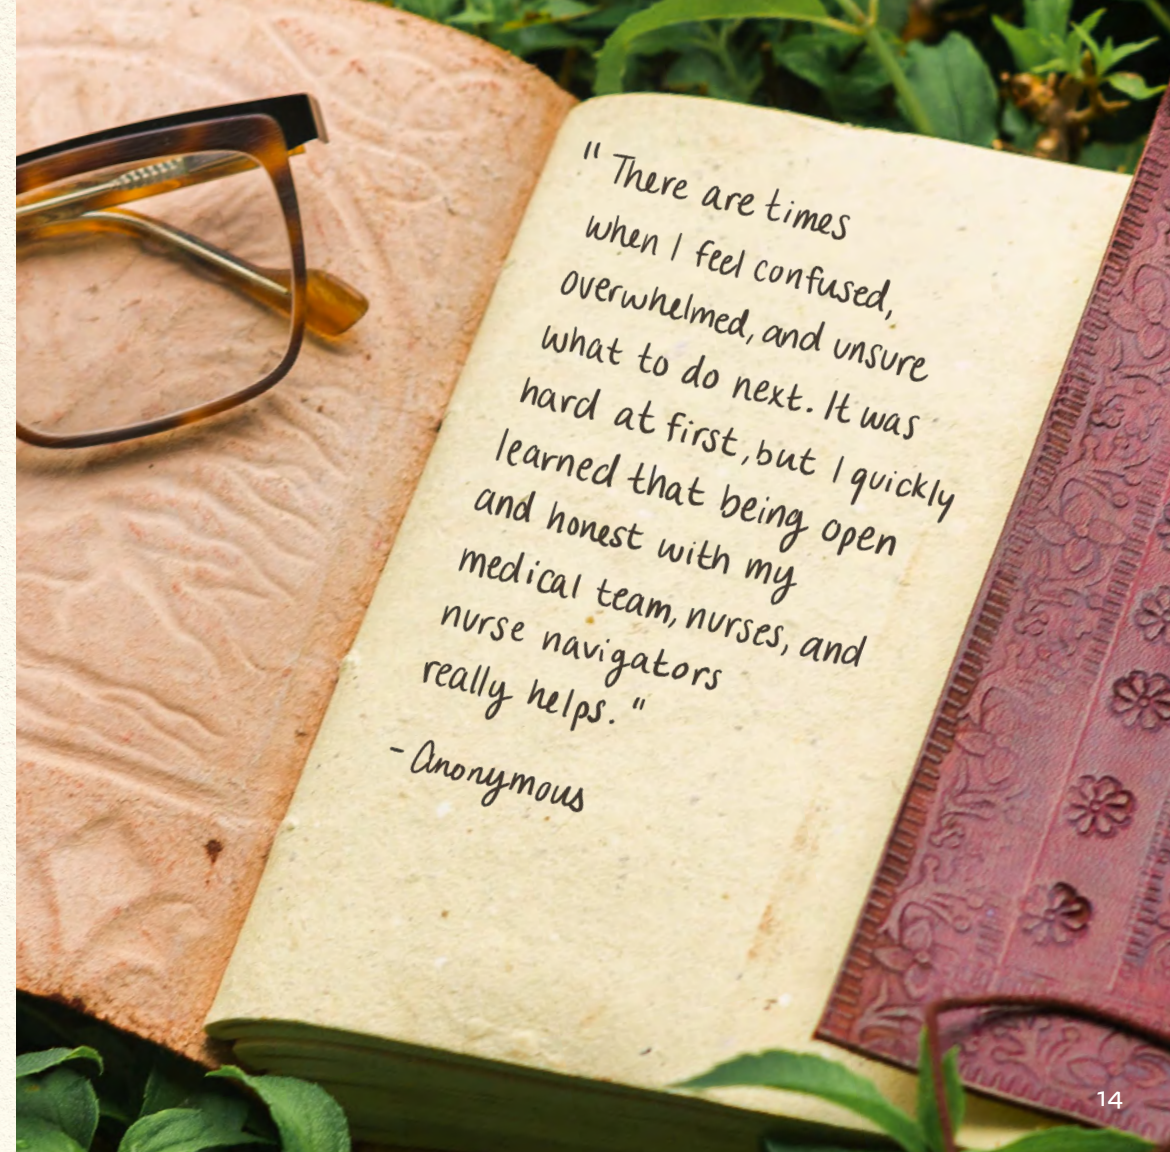 " There are times
when I feel confused,
overwhelmed, and unsure
what to do next. It was
hard at first, but I quickly
learned that being open
and honest with my
medical team, nurses, and
nurse navigators
really helps. "
- Anonymous
14